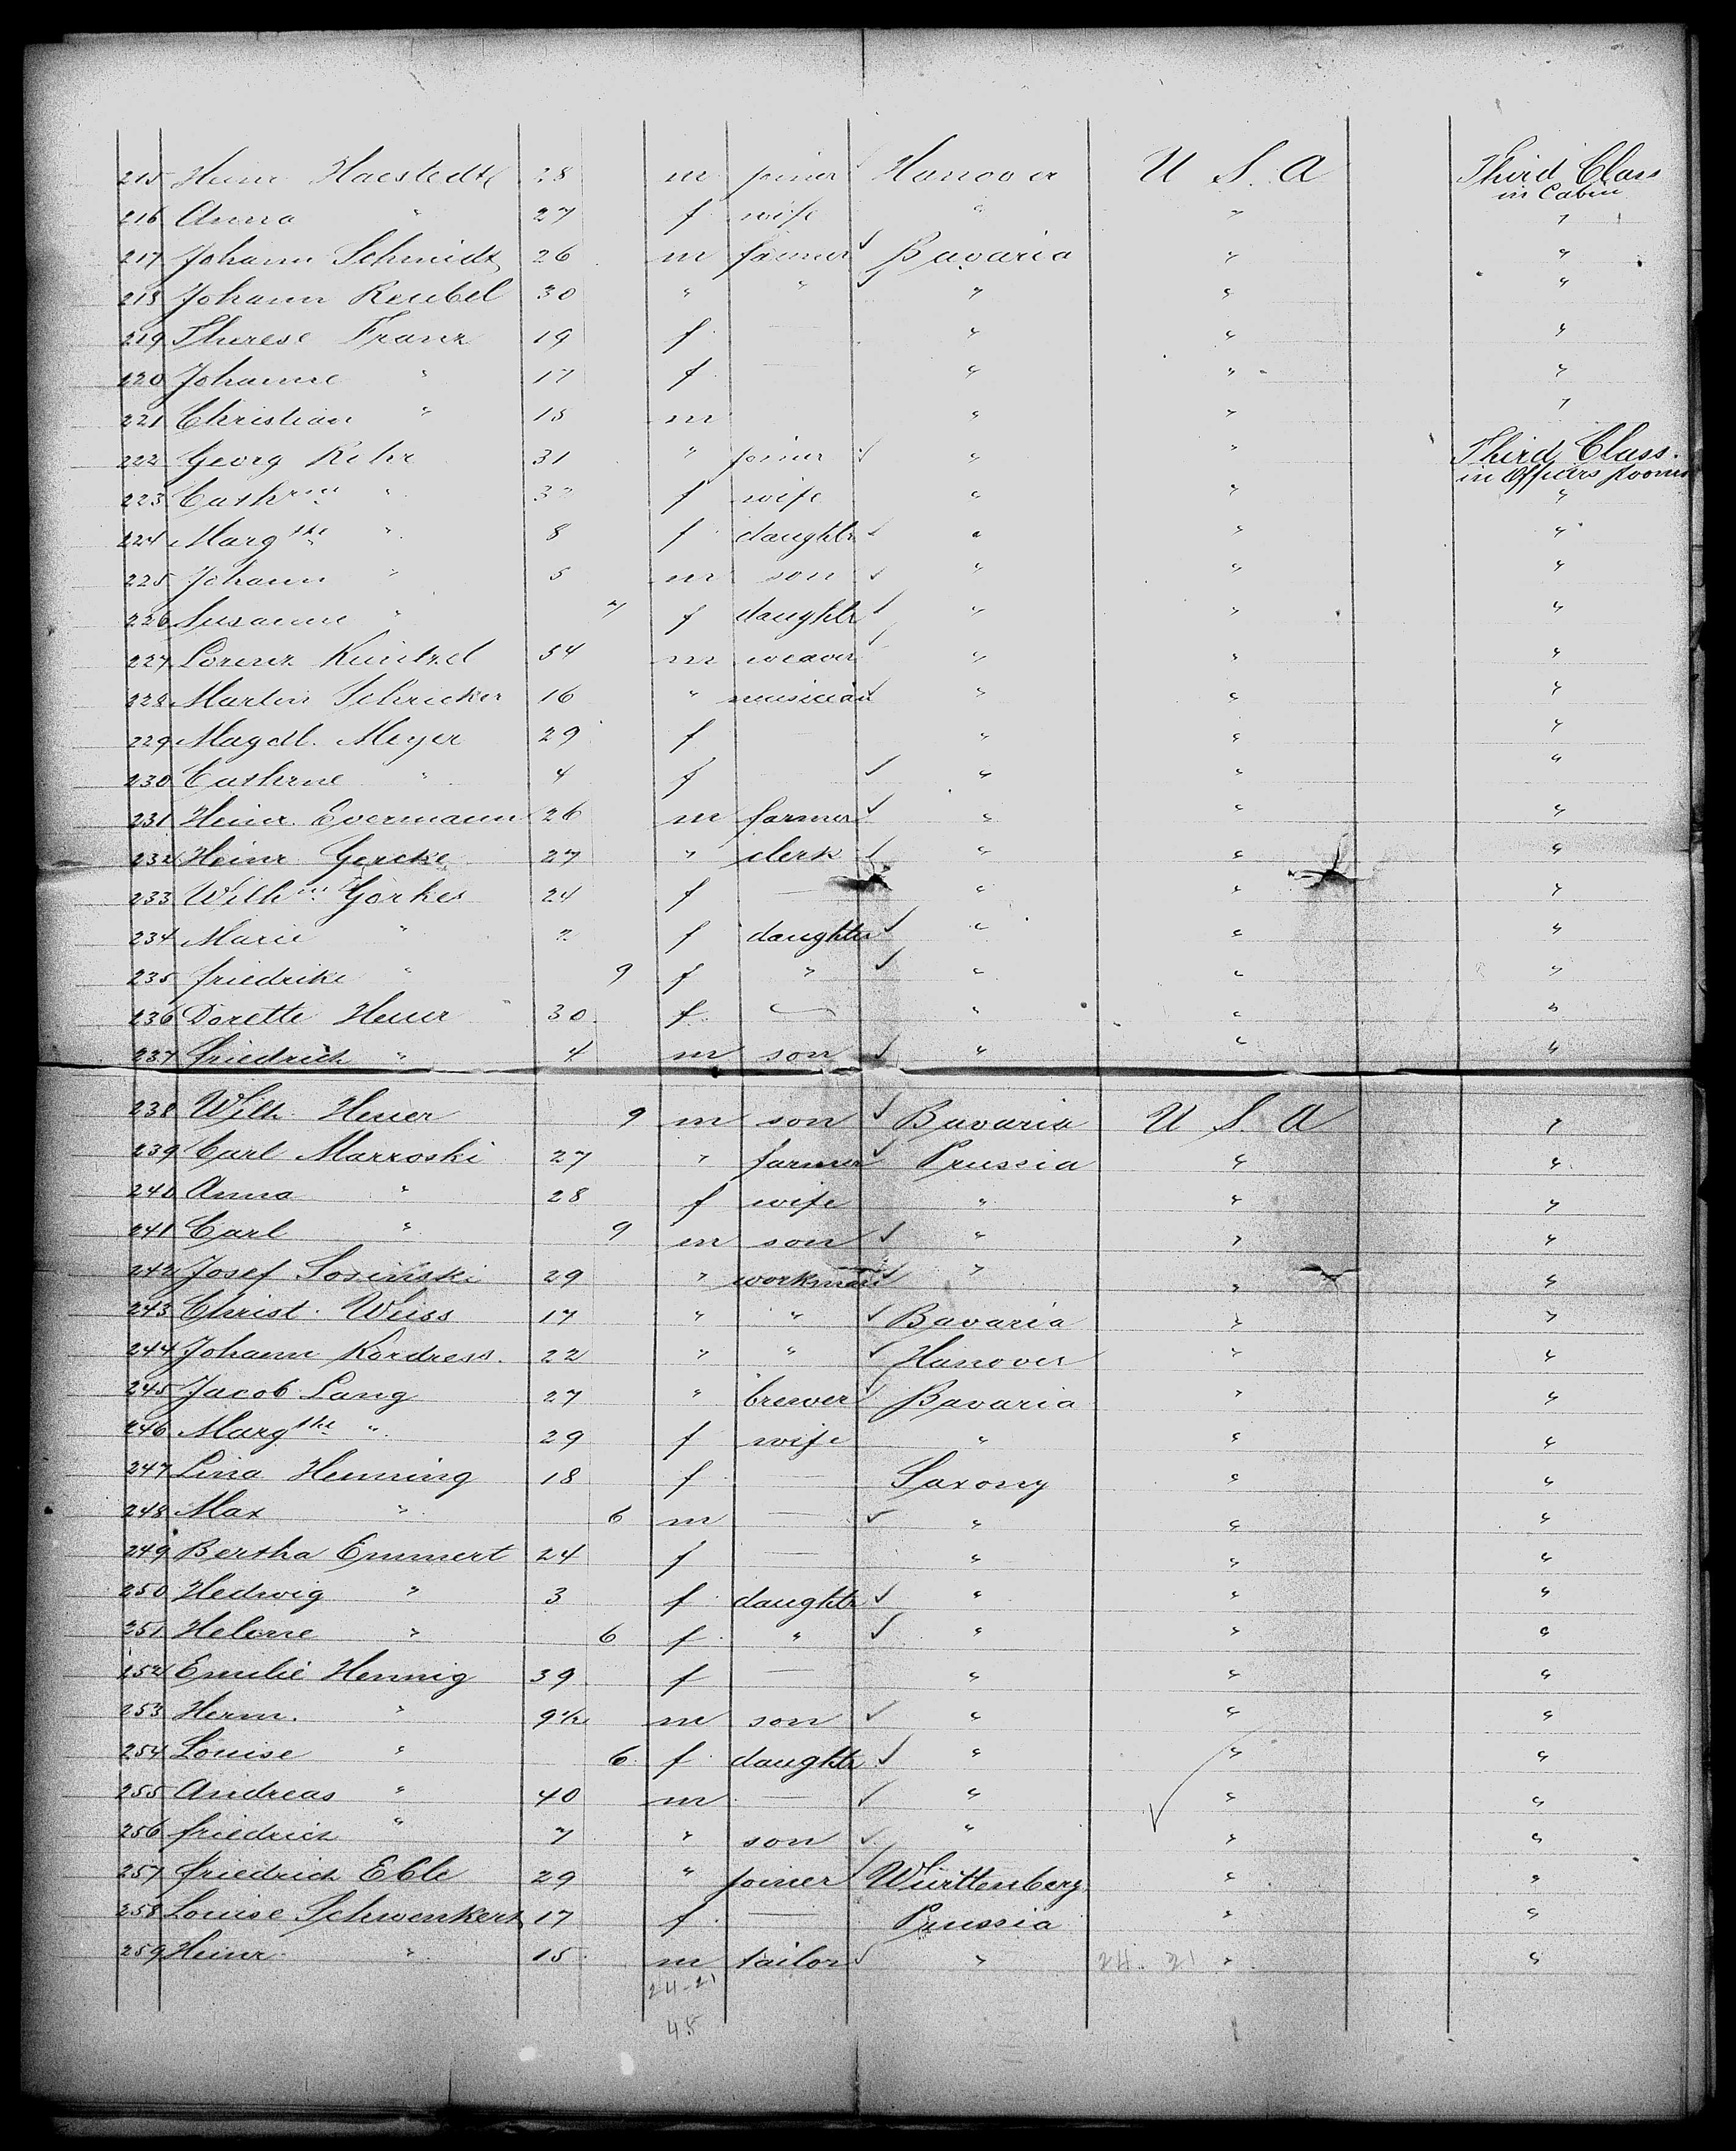 215 Heinr Haestedt 28 m joiner Hanover U S. A Third Class in Cabin
216 Anna " 27 f wife " " "
217 Johann Schmidt 26 m farmer ✓ Bavaria " "
218 Johann Reubel 30 " " ✓ " " "
219 Therese Franz 19 f — " " "
220 Johanne " 17 f — " " "
221 Christian " 18 m " " "
222 Georg Rehr 31 " joiner ✓ " " Third Class. in Officers rooms
223 Cath " f wife " " "
224 Marg the " 8 f daughtr ✓ " " "
225 Johann " 5 m son ✓ " " "
226 Susanne " 7 f daughtr ✓ " " "
227 Lorenz Kuntzel 54 m weaver ✓ " " "
228 Martin Schricker 16 " musician ✓ " " "
229 Magdl. Meyer 29 f — " " "
230 Cathrne " 4 f — ✓ " " "
231 Heinr. Evermann 26 m farmer ✓ " " "
232 Heinr Gercke 27 " clerk ✓ " " "
233 Wilh m. Görkes 24 f — " " "
234 Marie " 2 f daughter ✓ " " "
235 friedrike " 9 f " ✓ " " "
236 Dorette Heuer 30. f. — " " "
237 friedrich " 4 m son ✓ " " "
238 Wilh. Heuer 9 m son ✓ Bavaria U S. A "
239 Carl Marroski 27 " farmer ✓ Prussia " "
240 Anna " 28 f wife " " "
241 Carl " 9 m son ✓ " " "
242 Josef Sosinski 29 " workman ✓ " " "
243 Christ. Weiss 17 " " ✓ Bavaria " "
244 Johann Kordress. 22 " " ✓ Hanover " "
245 Jacob Lang 27 " brewer ✓ Bavaria " "
246 Marg the " 29 f wife " " "
247 Lina Henning 18 f — Saxony " "
248 Max " 6 m — ✓ " " "
249 Bertha Emmert 24 f — " " "
250 Hedwig " 3 f daughtr ✓ " " "
251 Helene " 6 f " ✓ " " "
252 Emilie Hennig 39 f — " " "
253 Herm. " 9½ m son ✓ " " "
254 Louise " 6. f daughtr ✓ " " "
255 Andreas " 40 m — ✓ " " "
256 friedrich " 7 " son ✓ " " "
257 friedrich Eble 29 " joiner ✓ Württenberg " "
258 Louise Schwenkert 17 f — Prussia " "
259 Heinr. " 15. m tailor ✓ " 24-21 " "
24-21
45